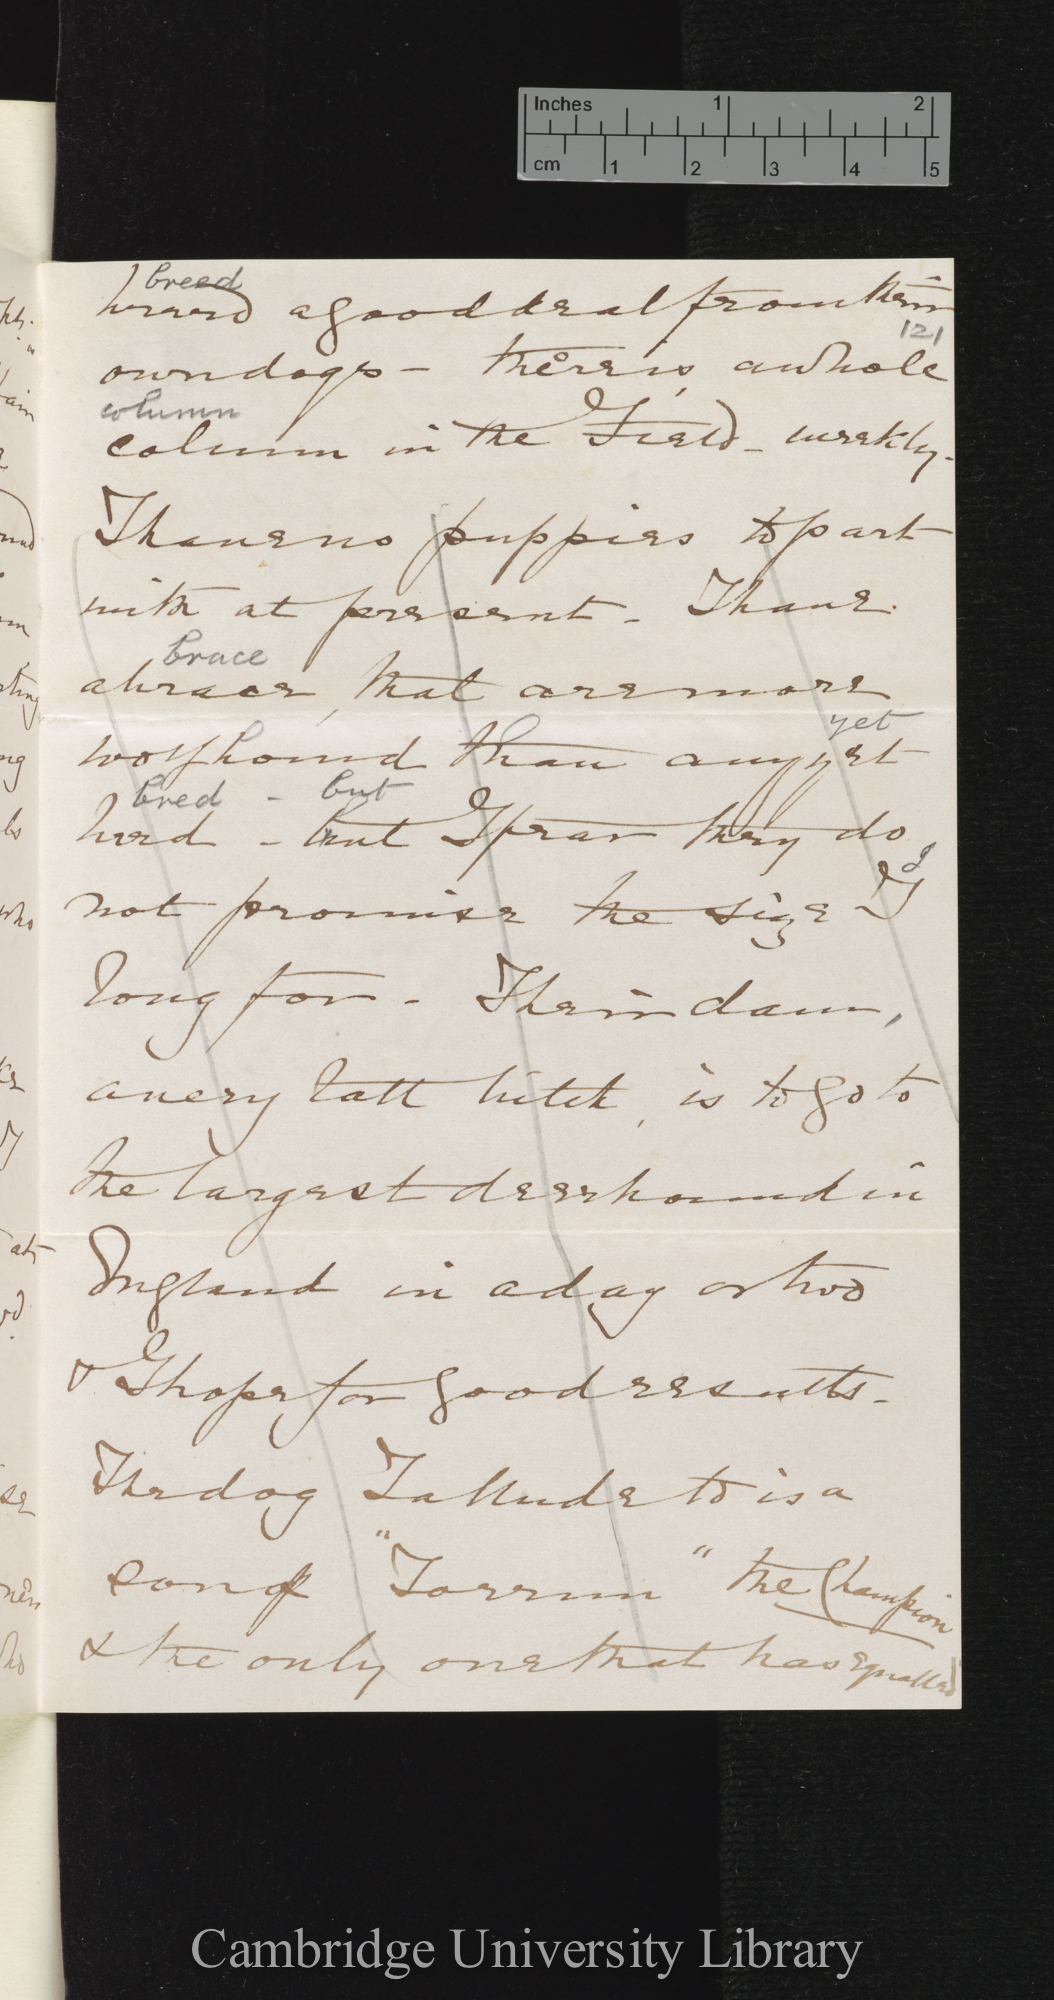 Inches 1 2
cm 1 2 3 4 5
breed
breed a good deal from their
121
own dogs – there is, a whole
column
column in the Field – weekly.
I have no puppies to part
with at present – I have
brace
a brace, that are more
yet
wolfhound than any yet
bred - but
bred – but I fear they do
I
not promise the size I
long for – Their dam,
a very tall bitch, is to go to
the largest deerhound in
England in a day or two
& I hope for good results –
The dog I allude to is a
son of "Torrum" the Champion
& the only one that has equalled
Cambridge University Library